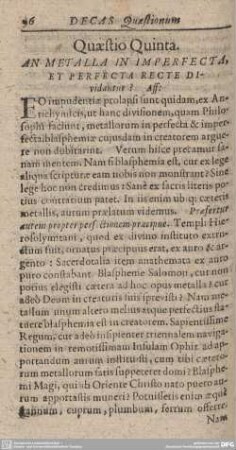 96 DECAS Quæstionum
Quæstio Quinta.
AN METALLA IN IMPERFECTA,
ET PERFECTA RECTE DI-
vidantur? Aff:
EO impudentiæ prolapsi sunt quidam, ex An-
tichymicis, ut hanc divisionem, quam Philo-
sophi faciunt, metallorum in perfecta & imper-
fecta, blasphemiæ cujusdam in creatorem argue-
re non dubitarint. Verum hisce precamur sa-
nam mentem. Nam si blasphemia est, cur ex lege
aliqua scripturæ eam nobis non monstrant? Sine
lege hoc non credimus: Sanè ex sacris literis po-
tius contrarium patet. In iis enim ubiq; cæteris
metallis, aurum prælatum videmus. Præfertur
autem propter perfectionem præcipuè. Templi Hie-
rosolymitani, quod ex divino instituto extru-
ctum fuit, ornatus præcipuus erat, ex auro & ar-
gento: Sacerdotalia item anathemata ex auro
puro constabant. Blaspheme Salomon, cur non
potius elegisti cætera ad hoc opus metalla? cur
adeò Deum in creaturis suis sprevisti? Nam me-
tallum unum altero melius atque perfectius sta-
tuere blasphemia est in creatorem. Sapientissime
Regum, cur adeò insipienter triennalem naviga-
tionem in remotissimam Insulam Ophir ad ap-
portandum aurum instituisti, cum tibi cætero-
rum metallorum satis suppeteret domi? Blasphe-
mi Magi, qui ab Oriente Christo nato puero au-
rum apportastis muneri? Potuissetis enim æquè
stannum, cuprum, plumbum, ferrum offerre.
Nam